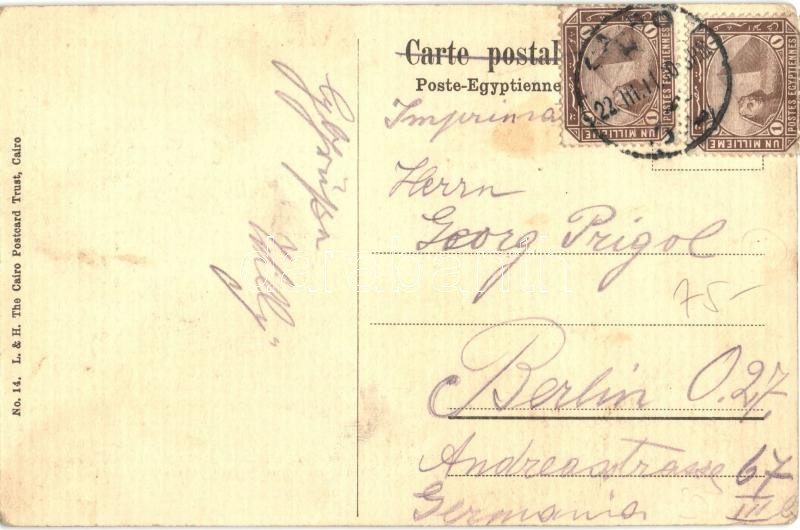 Carte postale
Poste-Egyptienne
UN MILLIEME
POSTES EGYPTIENNES
UN MILLIEME
POSTES EGYPTIENNES
CAIRO
22.III.11
Herrn
Georg Prigol
75-
Berlin O.27
Andreasstrasse 67
Germania III
Willy
No. 14. L. & H. The Cairo Postcard Trust, Cairo